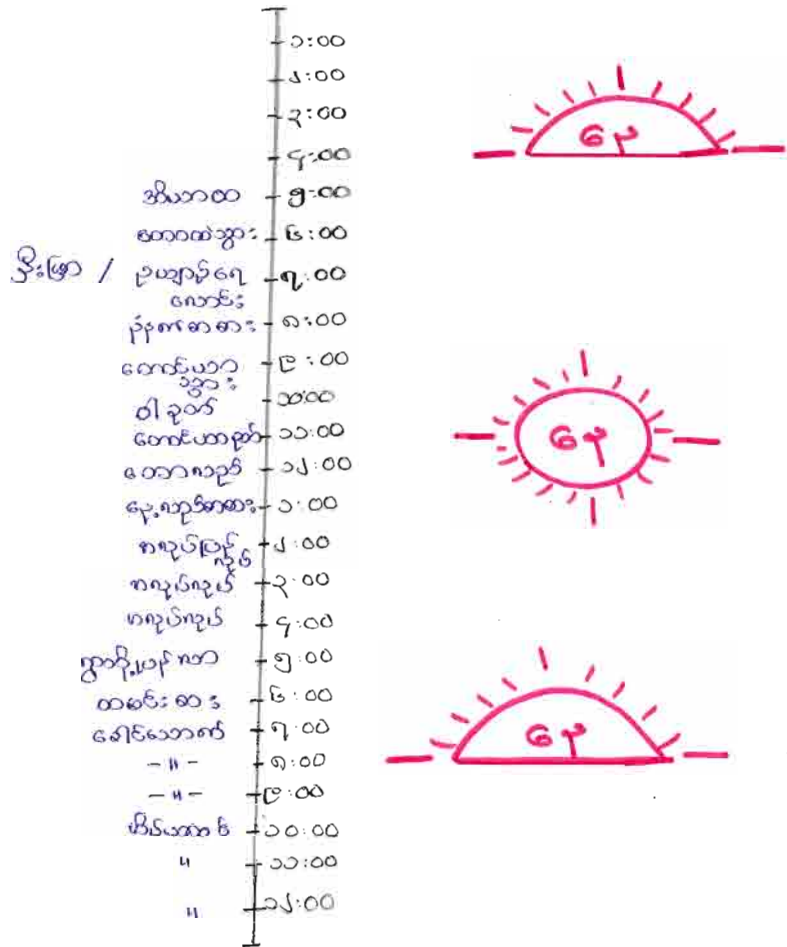 ၁:၀၀
၂:၀၀
၃:၀၀
နေ
၄:၀၀
အိပ်ယာထ ၅:၀၀
တောထဲသွား ၆:၀၀
/ ဥယျာဉ်ရေ ၇:၀၀
လောင်း
နံနက်စာစား ၈:၀၀
တောင်ယာ ၉:၀၀
သွား
ဝါးခုတ် ၁၀:၀၀
တောင်ယာခုတ် ၁၁:၀၀
နေ
တောလည် ၁၂:၀၀
နေ့လည်စာစား ၁:၀၀
အလုပ်ပြန် ၂:၀၀
လုပ်
အလုပ်လုပ် ၃:၀၀
အလုပ်လုပ် ၄:၀၀
ရွာသို့ပြန်လာ ၅:၀၀
ထမင်းစား ၆:၀၀
၇:၀၀
နေ
-"- ၈:၀၀
-"- ၉:၀၀
အိပ်ယာဝင် ၁၀:၀၀
" ၁၁:၀၀
" ၁၂:၀၀